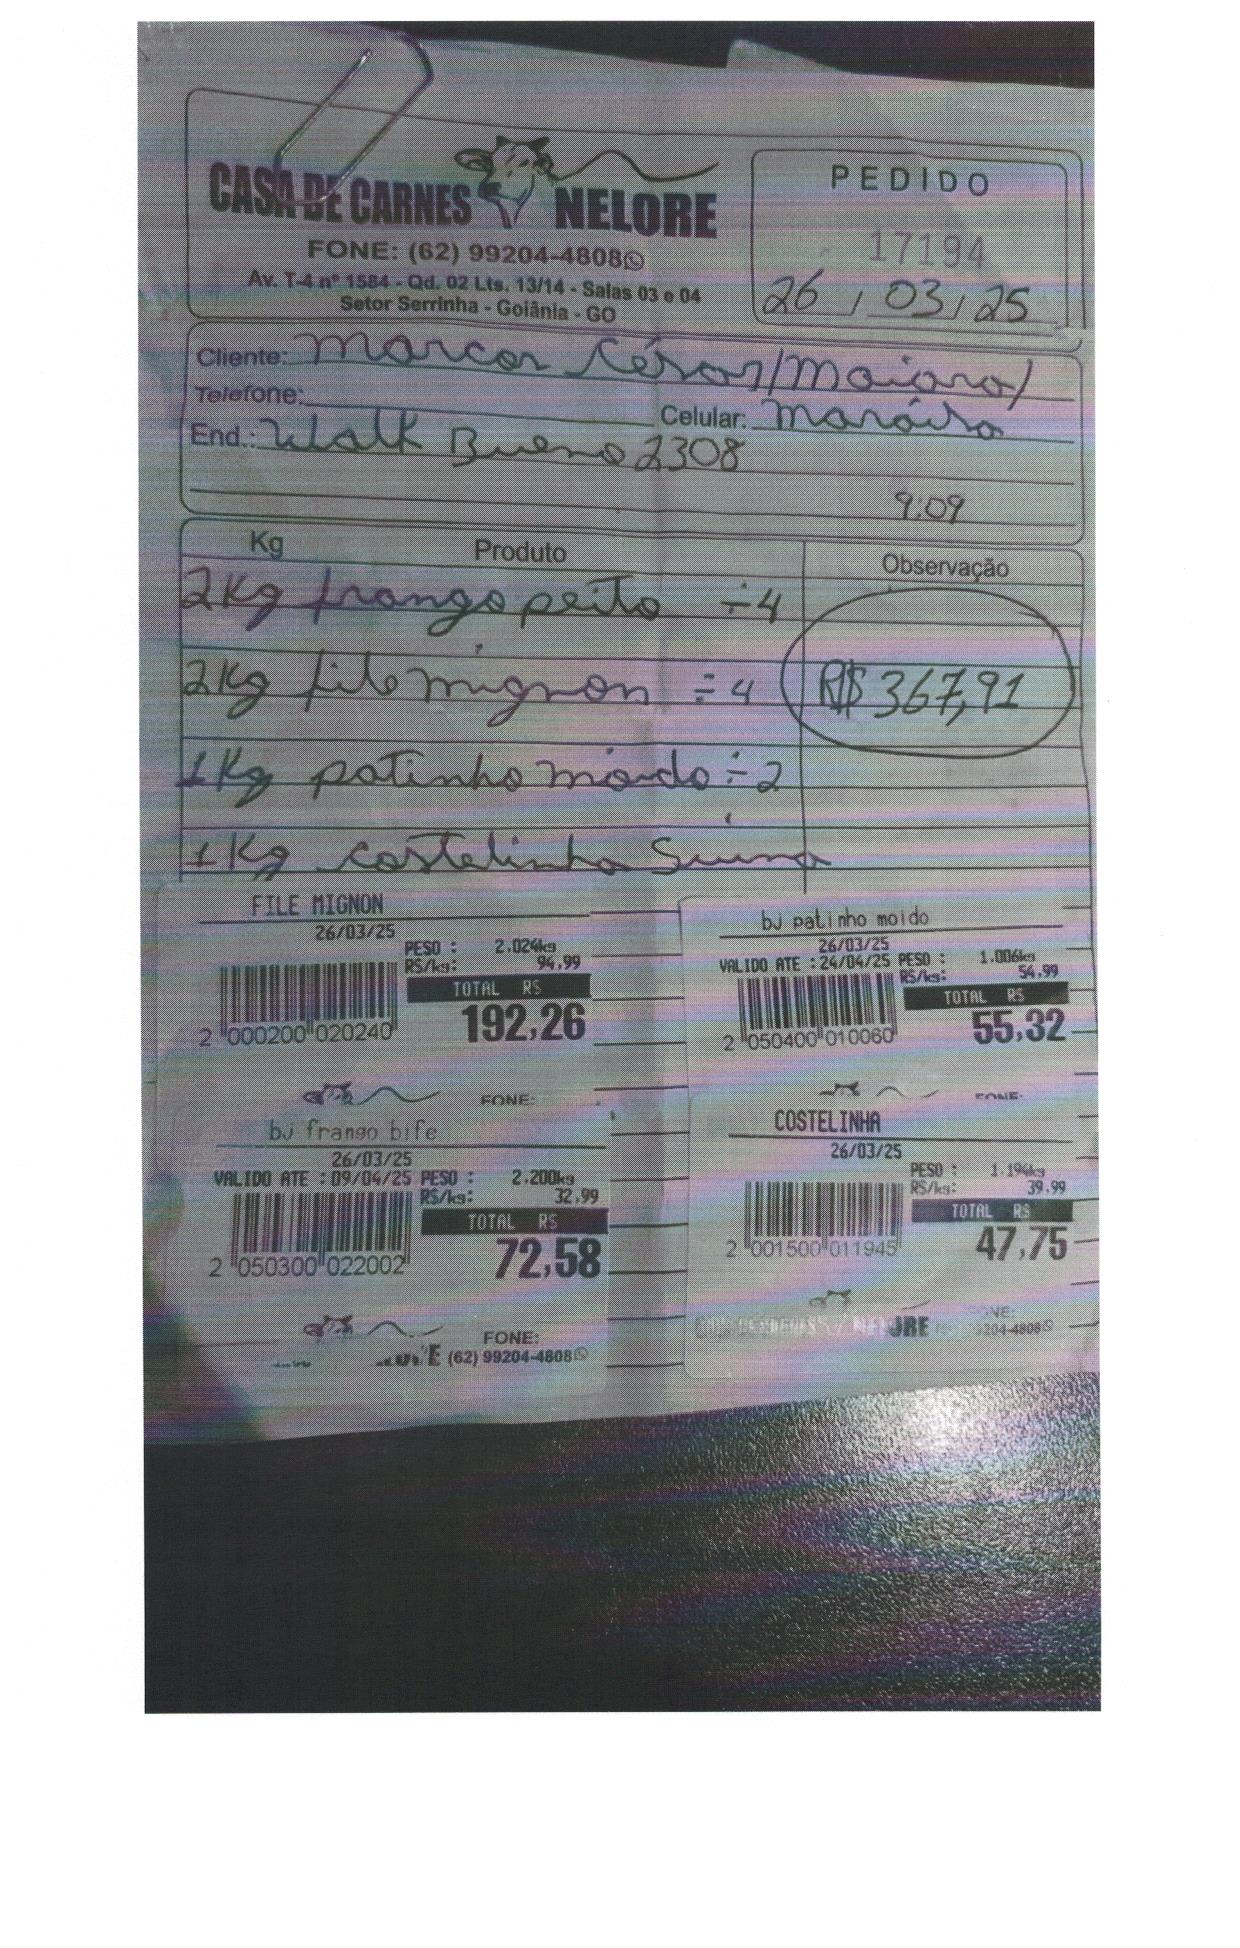 CASA DE CARNES NELORE
FONE: (62) 99204-4808
Av. T-4 nº 1584 - Qd. 02 Lts. 13/14 - Salas 03 e 04
Setor Serrinha - Goiânia - GO
PEDIDO
17194
26 / 03 / 25
Cliente: Marcos César/Maiara/
Telefone:
Celular: Maraisa
End.: Walk Bueno 2308
9:09
Kg Produto Observação
2Kg frango peito ÷4
2Kg file mignon ÷4 R$ 367,91
1Kg patinho moido ÷2
1Kg costelinha Suina
FILE MIGNON
26/03/25
PESO : 2.024kg
R$/kg: 94,99
TOTAL R$
192,26
2 000200 020240
FONE:
bj patinho moido
26/03/25
VALIDO ATE : 24/04/25 PESO : 1.006kg
R$/kg: 54,99
TOTAL R$
55,32
2 050400 010060
FONE:
bj frango bife
26/03/25
VALIDO ATE : 09/04/25 PESO : 2.200kg
R$/kg: 32,99
TOTAL R$
72,58
2 050300 022002
FONE:
(62) 99204-4808
COSTELINHA
26/03/25
PESO : 1.194kg
R$/kg: 39,99
TOTAL R$
47,75
2 001500 011945